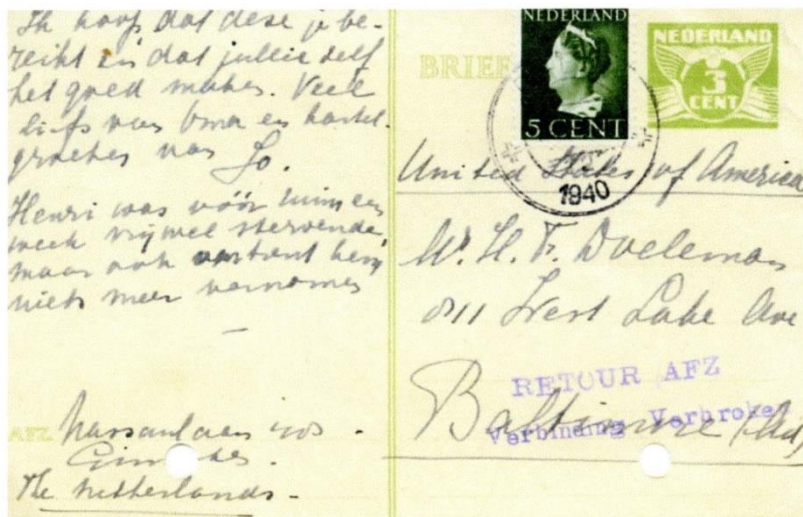 Ik hoop dat deze je be-
reikt en dat jullie zelf
het goed maken. Veel
liefs van Oma en hartel.
groeten van Jo.
Henri was vóór ruim een
week vrijwel stervende,
maar ook omtrent hem
niets meer vernomen
—
AFZ.
The Netherlands -
BRIEF
NEDERLAND
5 CENT
NEDERLAND
3
CENT
1940
United States of America
Mr. H. F. Doeleman
811 West Lake Ave
RETOUR AFZ
Baltimore (Md)
Verbinding Verbroken